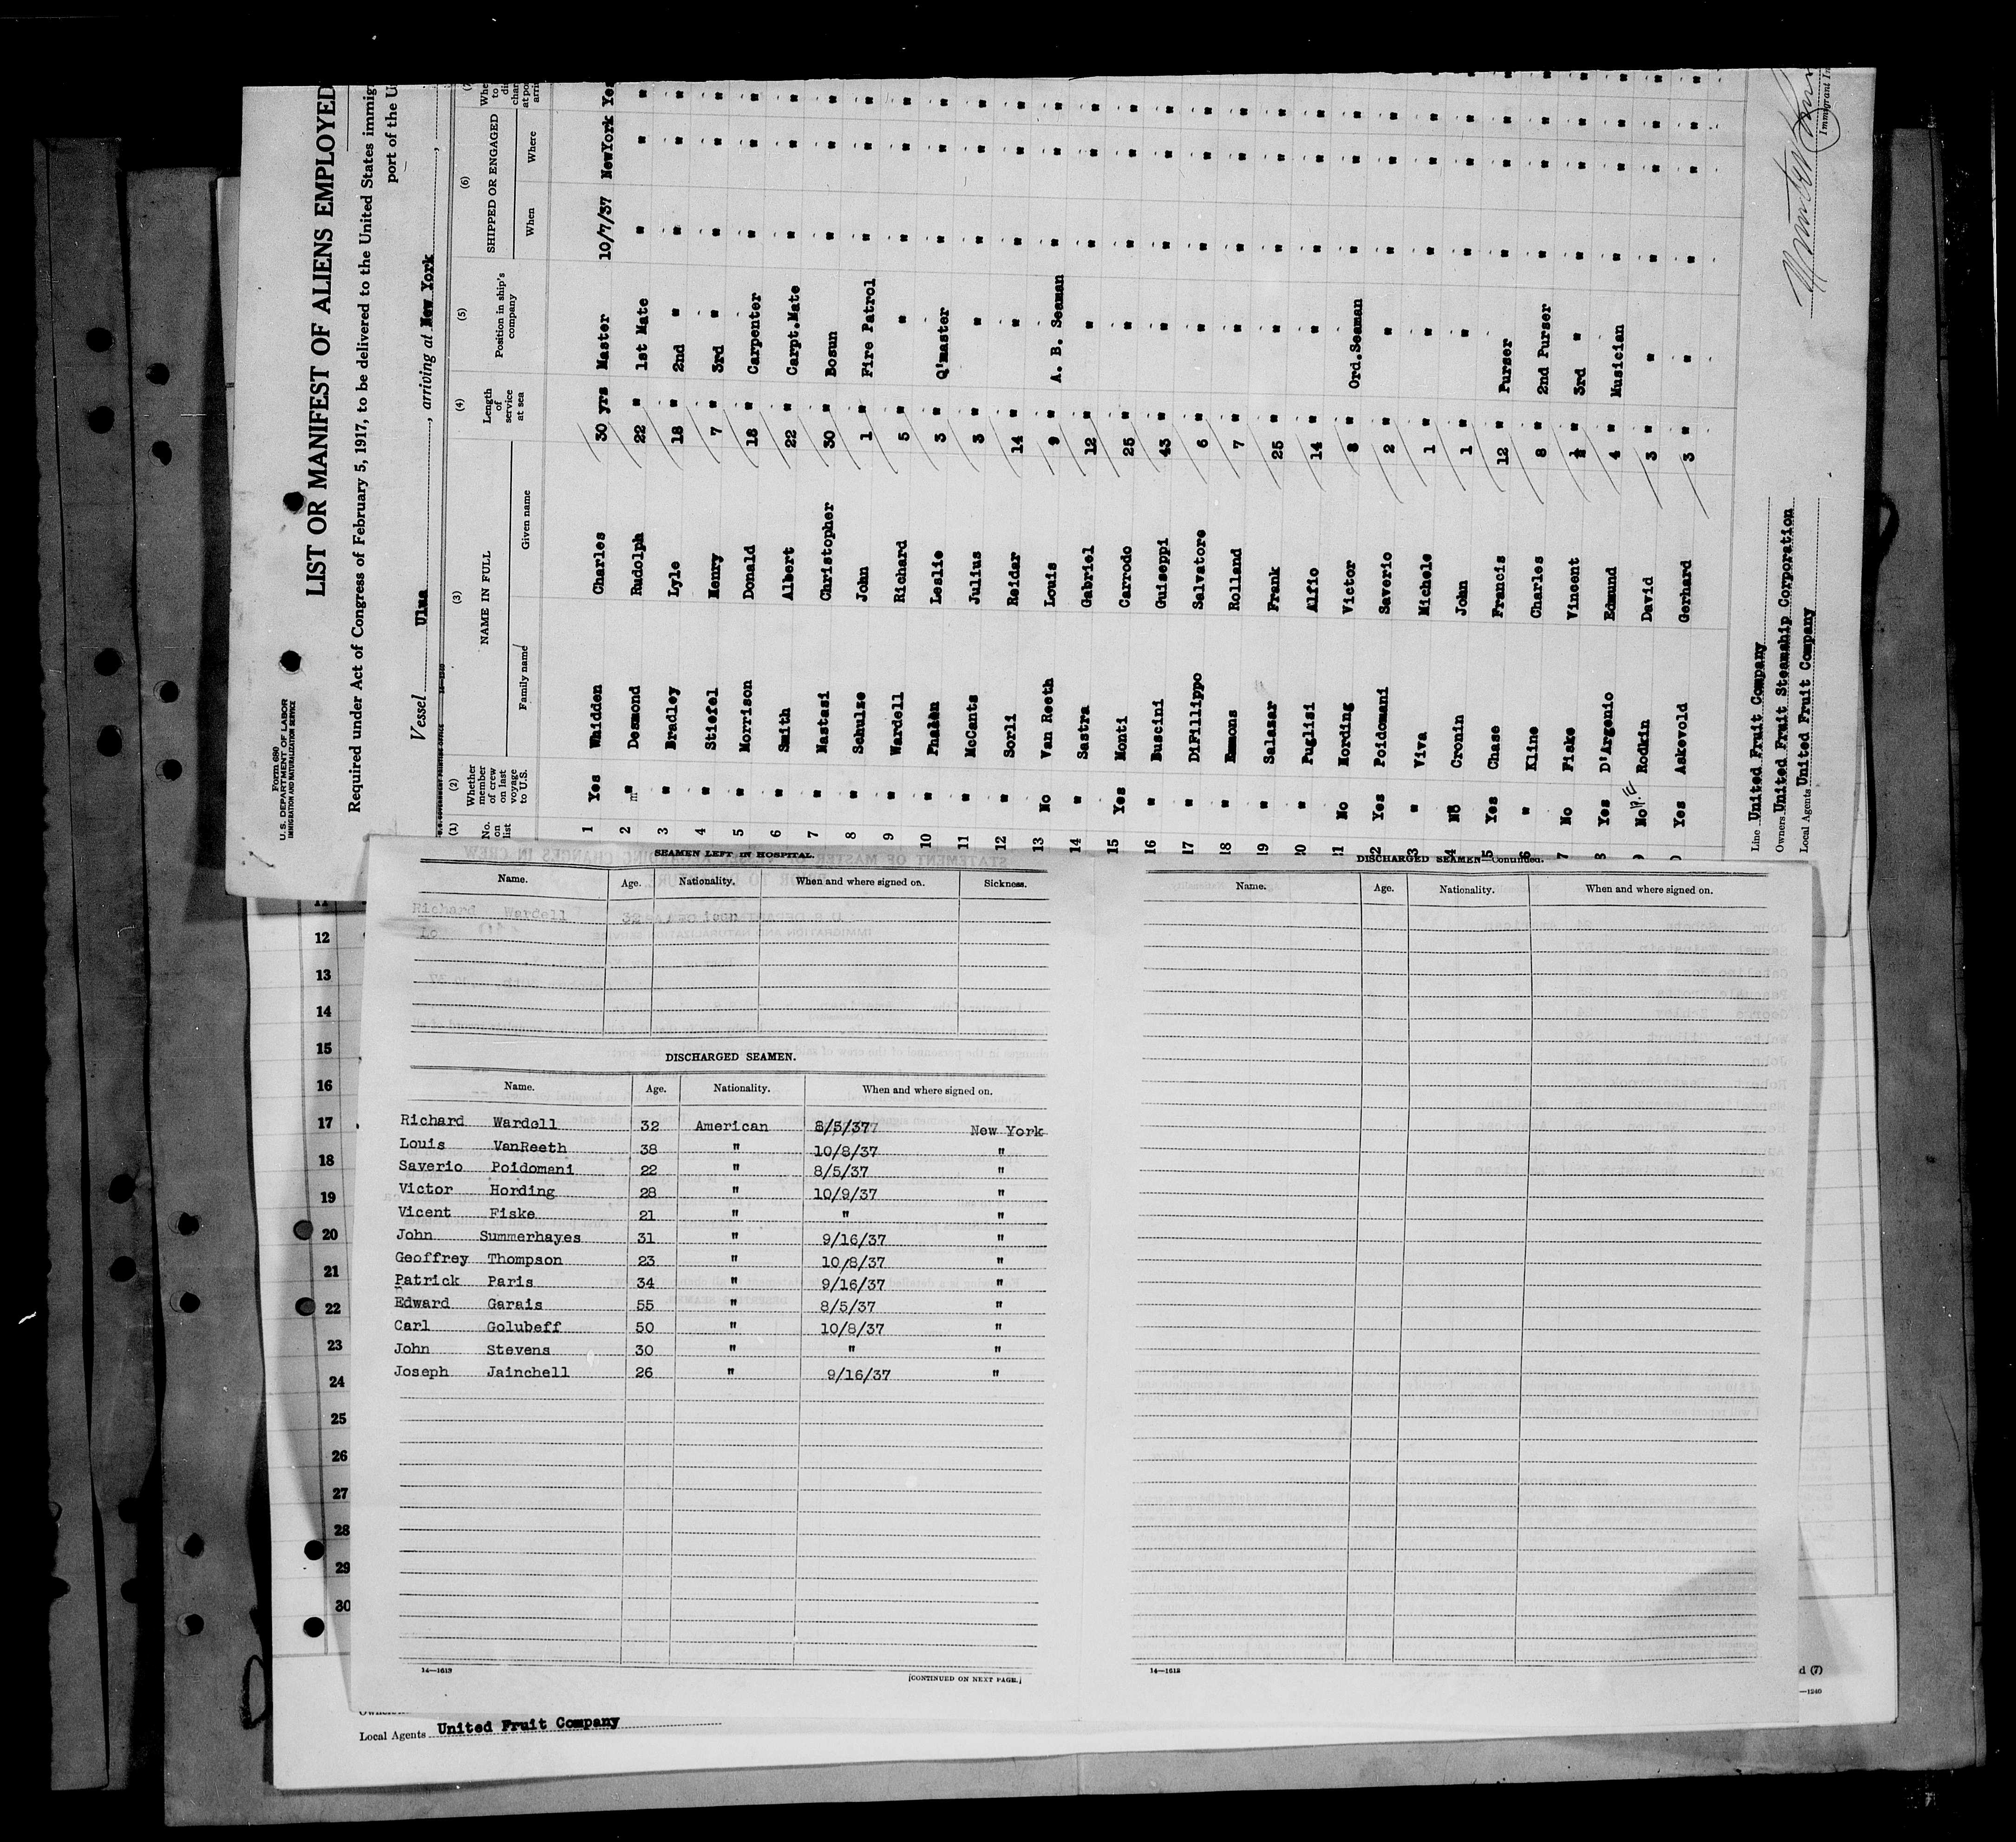 Form 680
U. S. DEPARTMENT OF LABOR
IMMIGRATION AND NATURALIZATION SERVICE
LIST OR MANIFEST OF ALIENS EMPLOYED
Required under Act of Congress of February 5, 1917, to be delivered to the United States immig
port of the U
Vessel Ulua, arriving at New York,
(1) (2) (3) (4) (5) (6)
No. on list Whether member of crew on last voyage to U.S. NAME IN FULL Length of service at sea Position in ship's company SHIPPED OR ENGAGED
Family name Given name When Where
1 Yes Whidden Charles 30 yrs Master 10/7/37 NewYork Yes
2 " Desmond Rudolph 22 " 1st Mate " " "
3 " Bradley Lyle 18 " 2nd " " " "
4 " Stiefel Henry 7 " 3rd " " " "
5 " Morrison Donald 18 " Carpenter " " "
6 " Smith Albert 22 " Carpt.Mate " " "
7 " Mastasi Christopher 30 " Bosun " " "
8 " Schulze John 1 " Fire Patrol " " "
9 " Wardell Richard 5 " " " " "
10 " Phalen Leslie 3 " Q'master " " "
11 " McCants Julius 3 " " " " "
12 " Sorli Reidar 14 " " " " "
13 No Van Reeth Louis 9 " A. B. Seaman " " "
14 " Sastra Gabriel 12 " " " " "
15 Yes Monti Carrodo 25 " " " " "
16 " Buscini Guiseppi 43 " " " " "
17 " DiFillippo Salvatore 6 " " " " "
18 " Emmons Rolland 7 " " " " "
19 " Salazar Frank 25 " " " " "
20 " Puglisi Alfio 14 " " " " "
21 No Hording Victor 8 " Ord.Seaman " " "
22 Yes Poidomani Saverio 2 " " " " "
23 " Viva Michele 1 " " " " "
24 No Cronin John 1 " " " " "
25 Yes Chase Francis 12 " Purser " " "
26 " Kline Charles 8 " 2nd Purser " " "
7 No Fiske Vincent ½ " 3rd " " " "
8 Yes D'Argenio Edmund 4 " Musician " " "
9 No Rodkin David 3 " " " " "
0 Yes Askevold Gerhard 3 " " " " "
Line United Fruit Company
Owners United Fruit Steamship Corporation
Local Agents United Fruit Company
Immigrant In
SEAMEN LEFT IN HOSPITAL.
Name. Age. Nationality. When and where signed on. Sickness.
Richard Wardell 32
Lo
DISCHARGED SEAMEN.
Name. Age. Nationality. When and where signed on.
Richard Wardell 32 American 8/5/37 New York
Louis VanReeth 38 " 10/8/37 "
Saverio Poidomani 22 " 8/5/37 "
Victor Hording 28 " 10/9/37 "
Vicent Fiske 21 " " "
John Summerhayes 31 " 9/16/37 "
Geoffrey Thompson 23 " 10/8/37 "
Patrick Paris 34 " 9/16/37 "
Edward Garais 55 " 8/5/37 "
Carl Golubeff 50 " 10/8/37 "
John Stevens 30 " " "
Joseph Jainchell 26 " 9/16/37 "
14—1613
[CONTINUED ON NEXT PAGE.]
DISCHARGED SEAMEN—Continued.
Name. Age. Nationality. When and where signed on.
14—1613
11
12
13
14
15
16
17
18
19
20
21
22
23
24
25
26
27
28
29
30
d (7)
—1240
Local Agents United Fruit Company